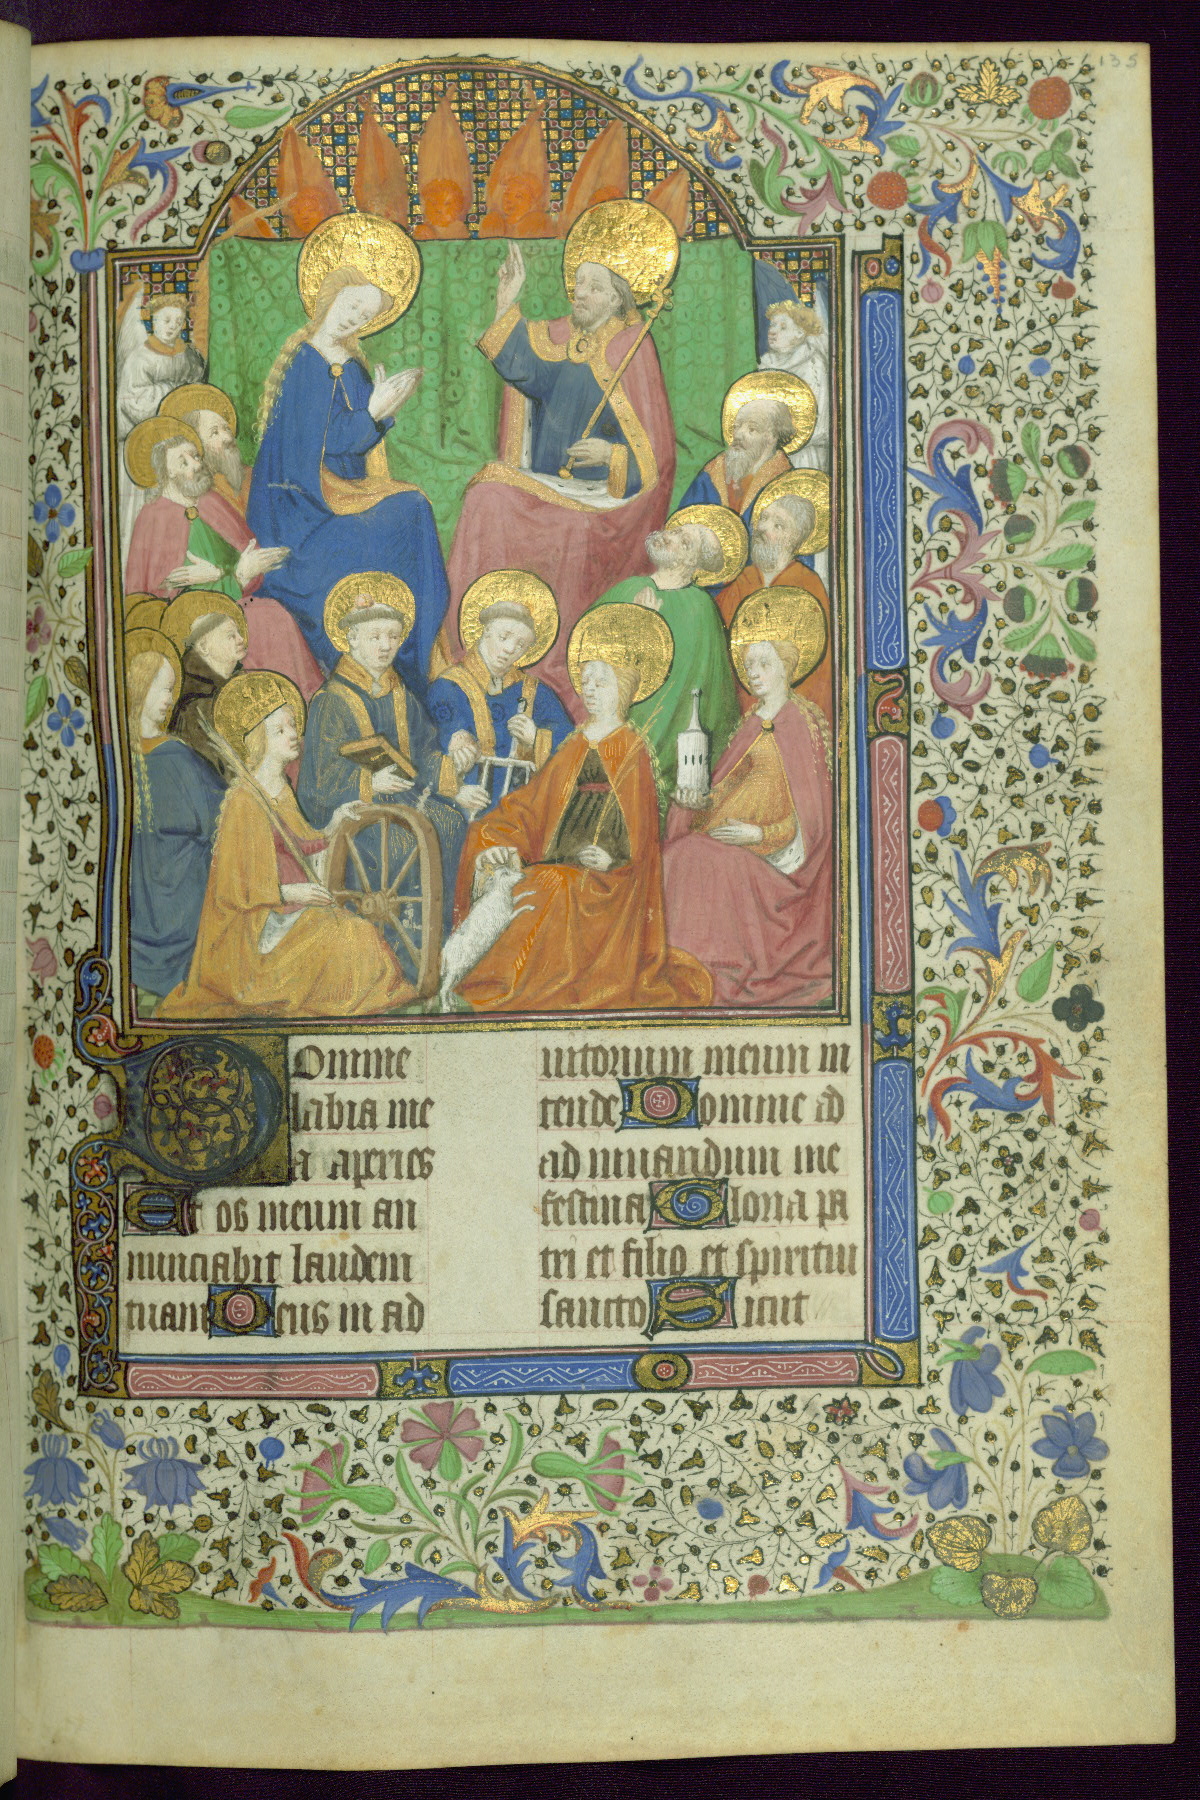 135
Domine
labia me
a aperies
Et os meum an
nunciabit laudem
tuam Deus in ad
iutorium meum in
tende Domine ad
ad iuuandum me
festina Gloria pa
tri et filio et spiritui
sancto Sicut